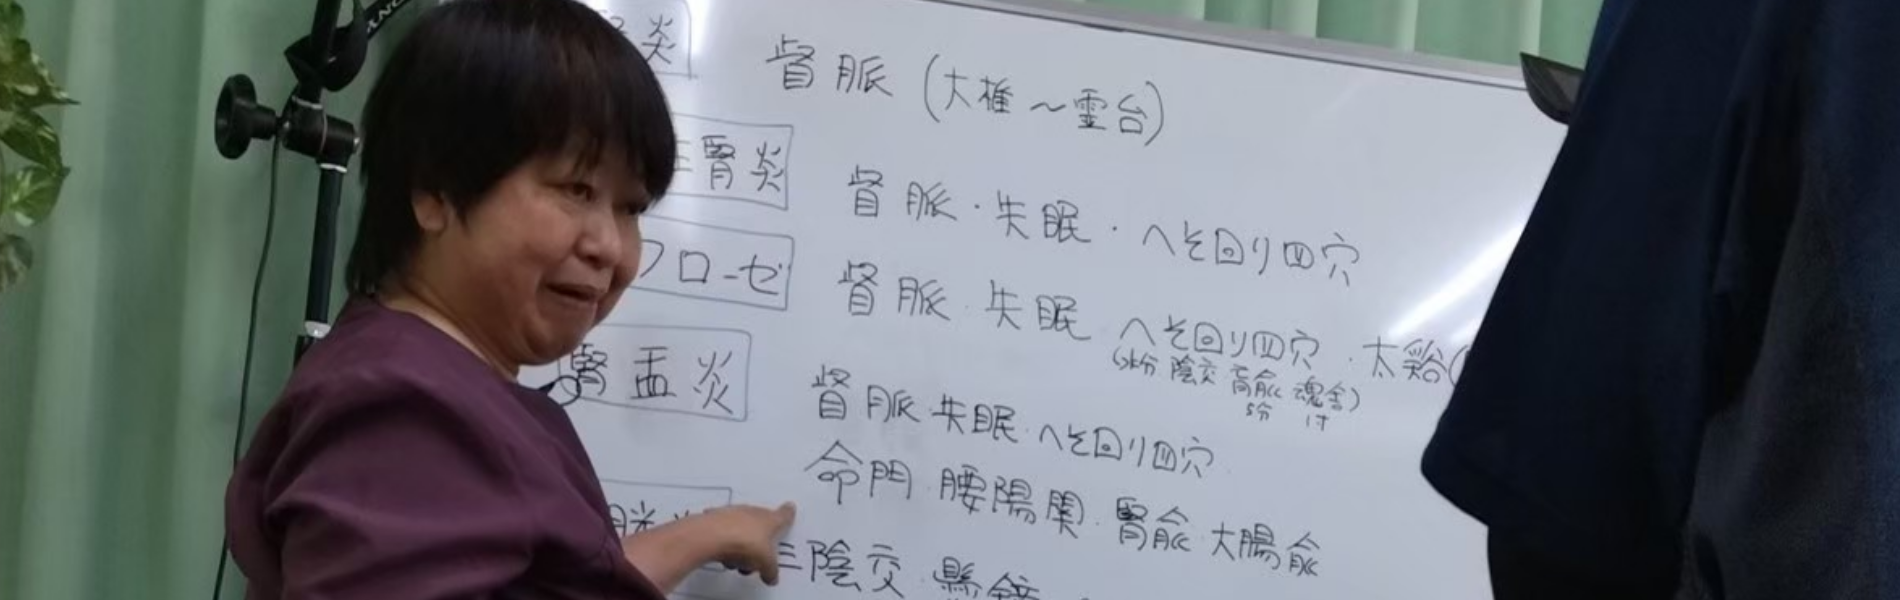 炎 督脈 (大椎～霊台)
腎炎 督脈・失眠・へそ回り四穴
フローゼ 督脈 失眠 へそ回り四穴・太谿(
(水分 陰交 肓兪 魂舎)
5分 1寸
腎盂炎 督脈 失眠・へそ回り四穴
命門 腰陽関・腎兪 大腸兪
三陰交・懸鐘